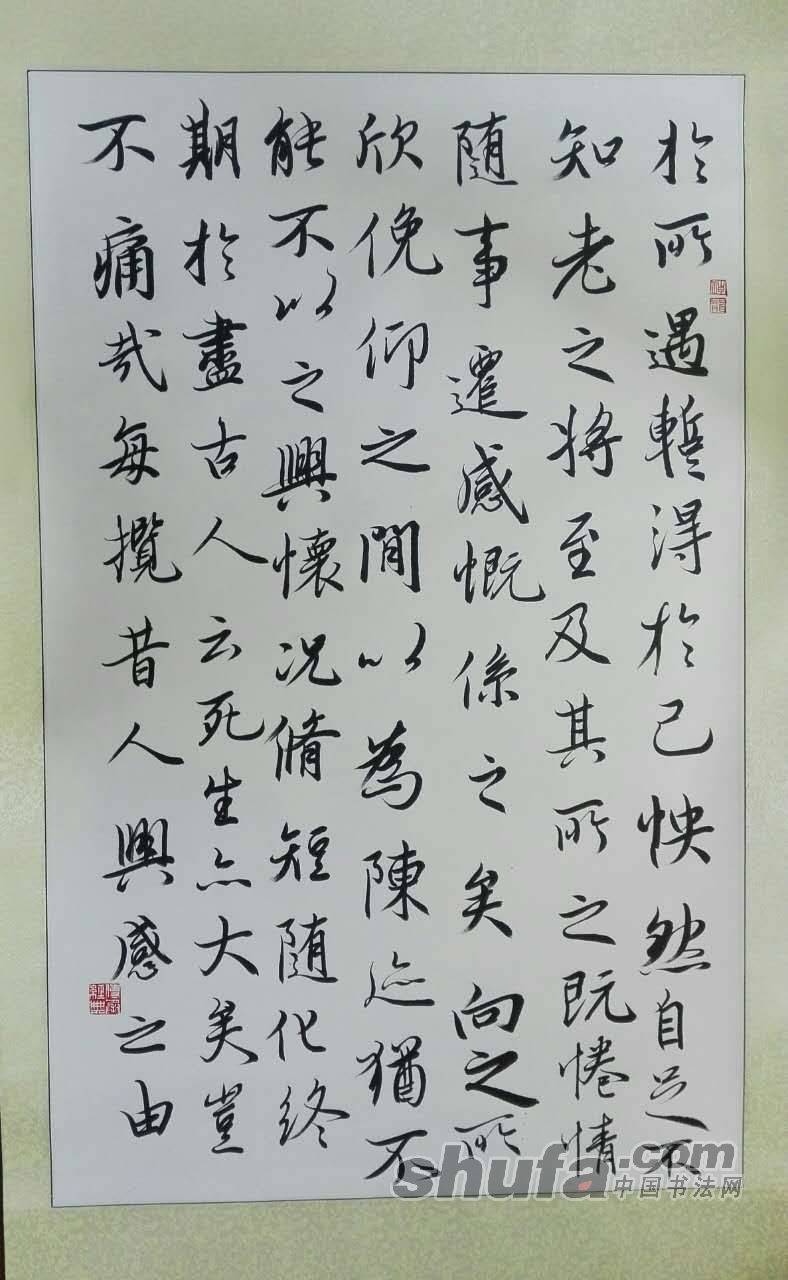 於所遇暫得於己怏然自足不
知老之將至及其所之既惓情
随事遷感慨係之矣向之所
欣俛仰之閒以為陳迹猶不
能不以之興懷况脩短随化終
期於盡古人云死生亦大矣豈
不痛哉每攬昔人興感之由
shufa.com
中国书法网